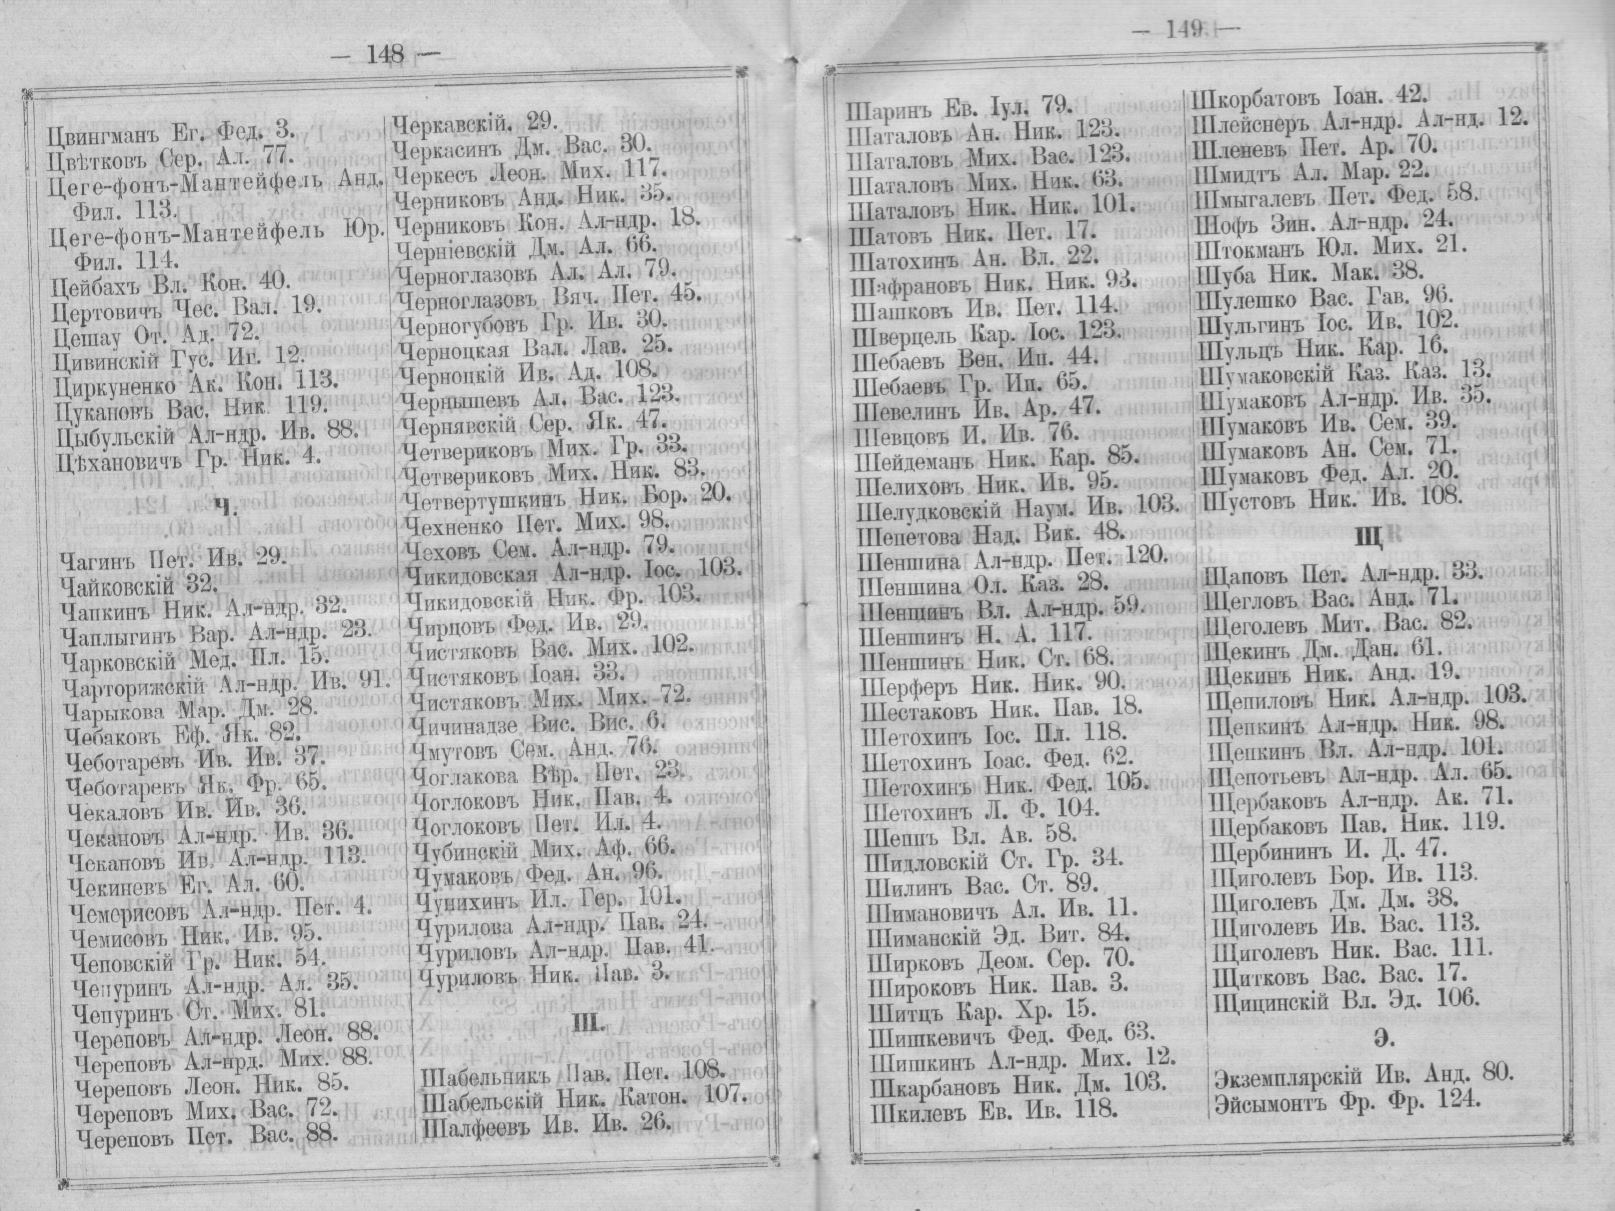 — 148 —
Цвингманъ Ег. Фед. 3.
Цвѣтковъ Сер. Ал. 77.
Цеге-фонъ-Мантейфель Анд.
Фил. 113.
Цеге-фонъ-Мантейфель Юр.
Фил. 114.
Цейбахъ Вл. Кон. 40.
Цертовичъ Чес. Вал. 19.
Цешау От. Ад. 72.
Цивинскій Гус. Иг. 12.
Циркуненко Ак. Кон. 113.
Цукановъ Вас. Ник. 119.
Цыбульскій Ал-ндр. Ив. 88.
Цѣхановичъ Гр. Ник. 4.
Ч.
Чагинъ Пет. Ив. 29.
Чайковскій 32.
Чапкинъ Ник. Ал-ндр. 32.
Чаплыгинъ Вар. Ал-ндр. 23.
Чарковскій Мед. Пл. 15.
Чарторижскій Ал-ндр. Ив. 91.
Чарыкова Мар. Дм. 28.
Чебаковъ Еф. Як. 82.
Чеботаревъ Ив. Ив. 37.
Чеботаревъ Як. Фр. 65.
Чекаловъ Ив. Ив. 36.
Чекановъ Ал-ндр. Ив. 36.
Чекановъ Ив. Ал-ндр. 113.
Чекиневъ Ег. Ал. 60.
Чемерисовъ Ал-ндр. Пет. 4.
Чемисовъ Ник. Ив. 95.
Чеповскій Гр. Ник. 54.
Чепуринъ Ал-ндр. Ал. 35.
Чепуринъ Ст. Мих. 81.
Череповъ Ал-ндр. Леон. 88.
Череповъ Ал-нрд. Мих. 88.
Череповъ Леон. Ник. 85.
Череповъ Мих. Вас. 72.
Череповъ Пет. Вас. 88.
Черкавскій. 29.
Черкасинъ Дм. Вас. 30.
Черкесъ Леон. Мих. 117.
Черниковъ Анд. Ник. 35.
Черниковъ Кон. Ал-ндр. 18.
Черніевскій Дм. Ал. 66.
Черноглазовъ Ал. Ал. 79.
Черноглазовъ Вяч. Пет. 45.
Черногубовъ Гр. Ив. 30.
Черноцкая Вал. Лав. 25.
Черноцкій Ив. Ад. 108.
Чернышевъ Ал. Вас. 123.
Чернявскій Сер. Як. 47.
Четвериковъ Мих. Гр. 33.
Четвериковъ Мих. Ник. 83.
Четвертушкинъ Ник. Бор. 20.
Чехненко Пет. Мих. 98.
Чеховъ Сем. Ал-ндр. 79.
Чикидовская Ал-ндр. Іос. 103.
Чикидовскій Ник. Фр. 103.
Чирцовъ Фед. Ив. 29.
Чистяковъ Вас. Мих. 102.
Чистяковъ Іоан. 33.
Чистяковъ Мих. Мих. 72.
Чичинадзе Вис. Вис. 6.
Чмутовъ Сем. Анд. 76.
Чоглакова Вѣр. Пет. 23.
Чоглоковъ Ник. Пав. 4.
Чоглоковъ Пет. Ил. 4.
Чубинскій Мих. Аф. 66.
Чумаковъ Фед. Ан. 96.
Чунихинъ Ил. Гер. 101.
Чурилова Ал-ндр. Пав. 24.
Чуриловъ Ал-ндр. Пав. 41.
Чуриловъ Ник. Пав. 3.
Ш.
Шабельникъ Пав. Пет. 108.
Шабельскій Ник. Катон. 107.
Шалфеевъ Ив. Ив. 26.
— 149 —
Шаринъ Ев. Іул. 79.
Шаталовъ Ан. Ник. 123.
Шаталовъ Мих. Вас. 123.
Шаталовъ Мих. Ник. 63.
Шаталовъ Ник. Ник. 101.
Шатовъ Ник. Пет. 17.
Шатохинъ Ан. Вл. 22.
Шафрановъ Ник. Ник. 93.
Шашковъ Ив. Пет. 114.
Шверцель Кар. Іос. 123.
Шебаевъ Вен. Ип. 44.
Шебаевъ Гр. Ип. 65.
Шевелинъ Ив. Ар. 47.
Шевцовъ И. Ив. 76.
Шейдеманъ Ник. Кар. 85.
Шелиховъ Ник. Ив. 95.
Шелудковскій Наум. Ив. 103.
Шепетова Над. Вик. 48.
Шеншина Ал-ндр. Пет. 120.
Шеншина Ол. Каз. 28.
Шеншинъ Вл. Ал-ндр. 59.
Шеншинъ Н. А. 117.
Шеншинъ Ник. Ст. 68.
Шерферъ Ник. Ник. 90.
Шестаковъ Ник. Пав. 18.
Шетохинъ Іос. Пл. 118.
Шетохинъ Іоас. Фед. 62.
Шетохинъ Ник. Фед. 105.
Шетохинъ Л. Ф. 104.
Шеппъ Вл. Ав. 58.
Шидловскій Ст. Гр. 34.
Шилинъ Вас. Ст. 89.
Шимановичъ Ал. Ив. 11.
Шиманскій Эд. Вит. 84.
Ширковъ Деом. Сер. 70.
Широковъ Ник. Пав. 3.
Шитцъ Кар. Хр. 15.
Шишкевичъ Фед. Фед. 63.
Шишкинъ Ал-ндр. Мих. 12.
Шкарбановъ Ник. Дм. 103.
Шкилевъ Ев. Ив. 118.
Шкорбатовъ Іоан. 42.
Шлейснеръ Ал-ндр. Ал-нд. 12.
Шленевъ Пет. Ар. 70.
Шмидтъ Ал. Мар. 22.
Шмыгалевъ Пет. Фед. 58.
Шофъ Зин. Ал-ндр. 24.
Штокманъ Юл. Мих. 21.
Шуба Ник. Мак. 38.
Шулешко Вас. Гав. 96.
Шульгинъ Іос. Ив. 102.
Шульцъ Ник. Кар. 16.
Шумаковскій Каз. Каз. 13.
Шумаковъ Ал-ндр. Ив. 35.
Шумаковъ Ив. Сем. 39.
Шумаковъ Ан. Сем. 71.
Шумаковъ Фед. Ал. 20.
Шустовъ Ник. Ив. 108.
Щ
Щаповъ Пет. Ал-ндр. 33.
Щегловъ Вас. Анд. 71.
Щеголевъ Мит. Вас. 82.
Щекинъ Дм. Дан. 61.
Щекинъ Ник. Анд. 19.
Щепиловъ Ник. Ал-ндр. 103.
Щепкинъ Ал-ндр. Ник. 98.
Щепкинъ Вл. Ал-ндр. 101.
Щепотьевъ Ал-ндр. Ал. 65.
Щербаковъ Ал-ндр. Ак. 71.
Щербаковъ Пав. Ник. 119.
Щербининъ И. Д. 47.
Щиголевъ Бор. Ив. 113.
Щиголевъ Дм. Дм. 38.
Щиголевъ Ив. Вас. 113.
Щиголевъ Ник. Вас. 111.
Щитковъ Вас. Вас. 17.
Щицинскій Вл. Эд. 106.
Э.
Экземплярскій Ив. Анд. 80.
Эйсымонтъ Фр. Фр. 124.